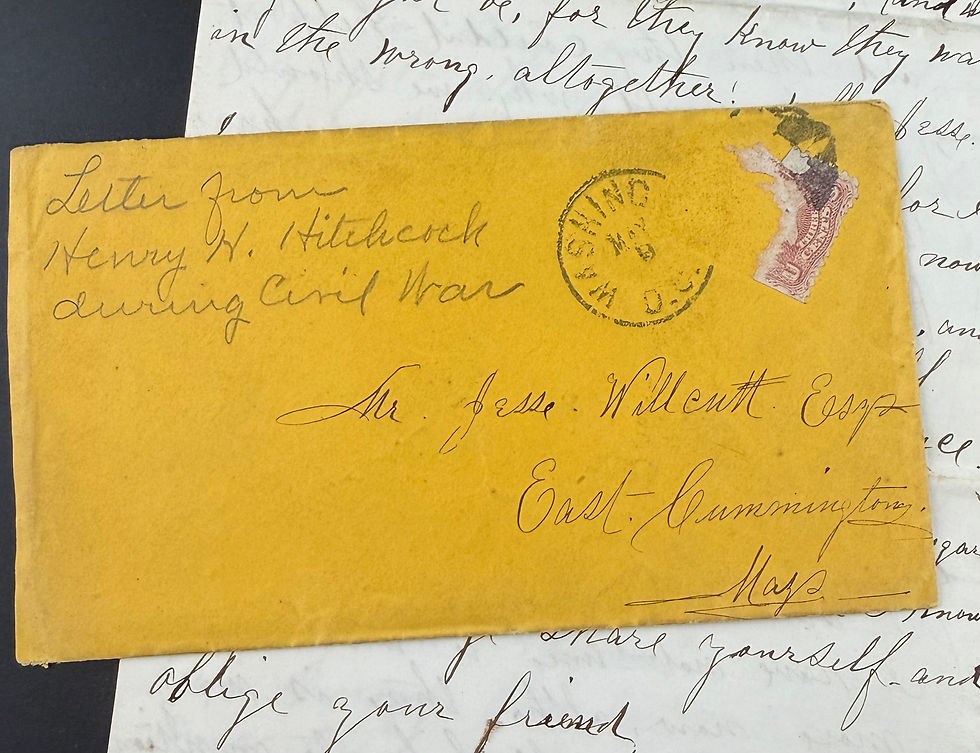 be, for they know they
in the wrong, altogether!
Jesse.
for
now
Letter from
Henry H. Hitchcock
during Civil War
WASHING
MAY
D.C.
U
Mr. Jesse. Willcutt. Esqr
East. Cummington.
Mass
and
know
share yourself and
oblige your friend